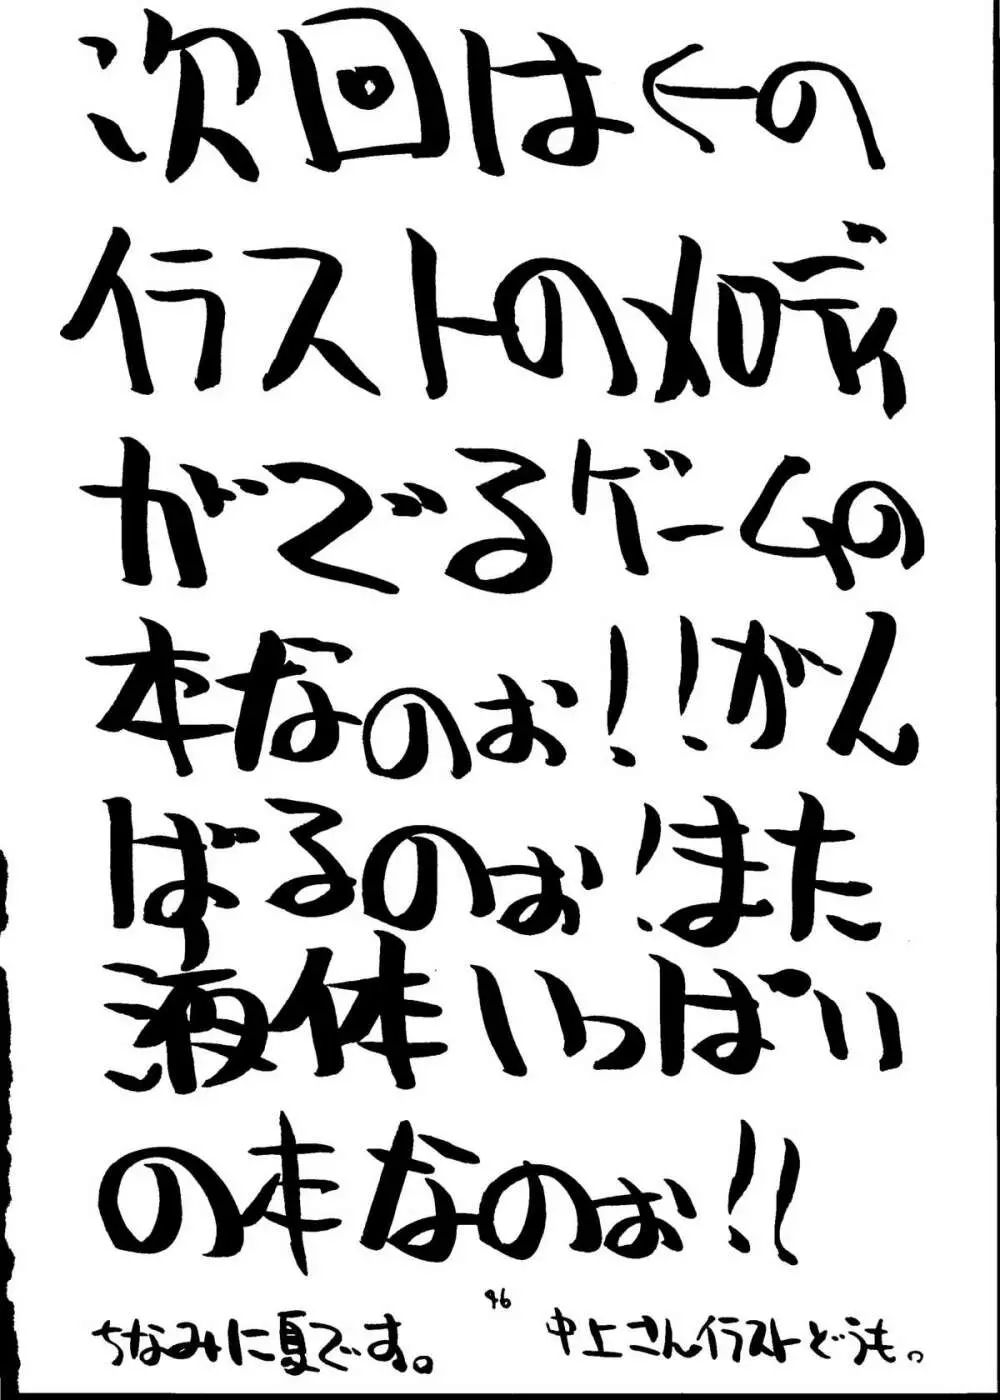 次回は←の
イラストの如衣
がでるゲームの
本なのぉ!!がん
ばるのぉ!また
液体いっぱい
の本なのぉ!!
46
ちなみに夏です。 中上さんイラストどうも。